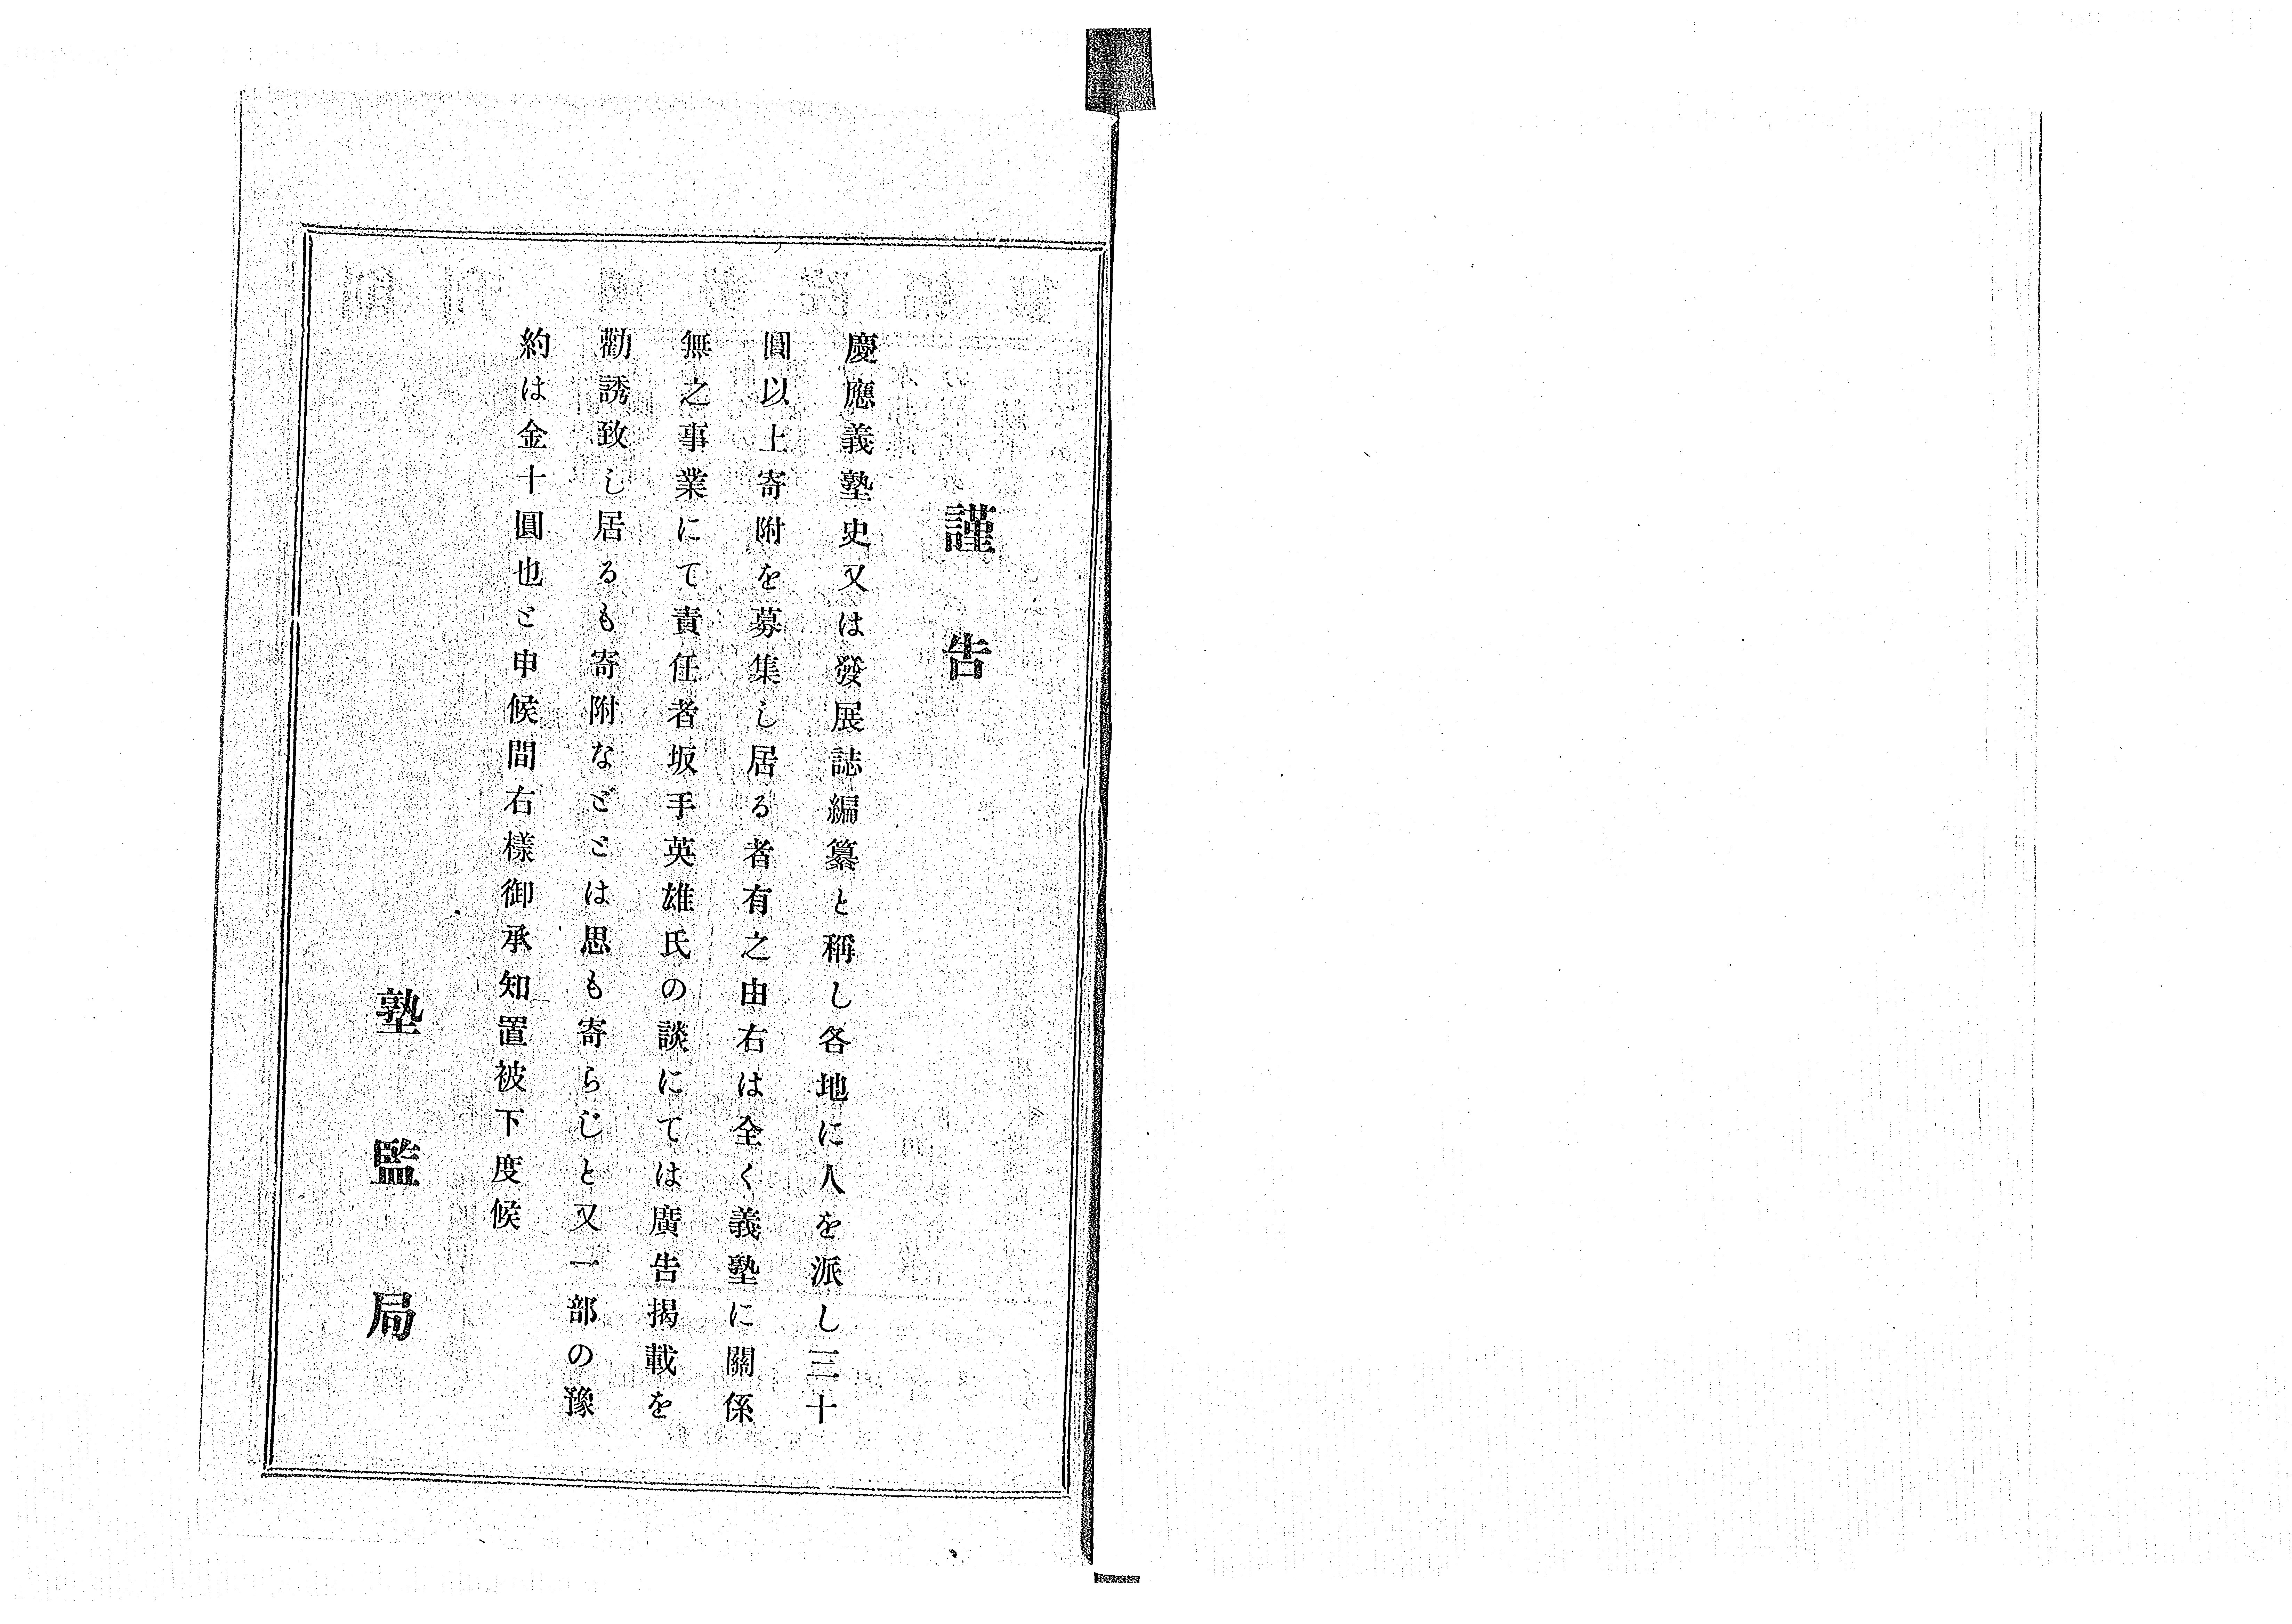 謹告
慶應義塾史又は發展誌編纂と稱し各地に人を派し三十
圓以上寄附を募集し居る者有之由右は全く義塾に關係
無之事業にて責任者坂手英雄氏の談にては廣告揭載を
勸誘致し居るも寄附などとは思も寄らじと又一部の豫
約は金十圓也と申候間右樣御承知置被下度候
塾監局